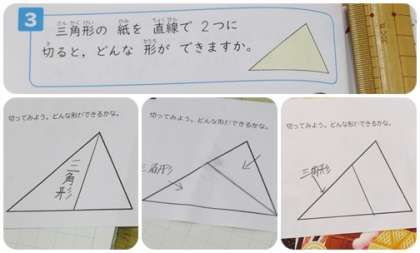 3
三角形の 紙を 直線で 2つに
切ると、どんな 形が できますか。
切ってみよう。どんな形ができるかな。
三角形
切ってみよう。どんな形ができるかな。
三角形
切ってみよう。どんな形ができるかな。
三角形